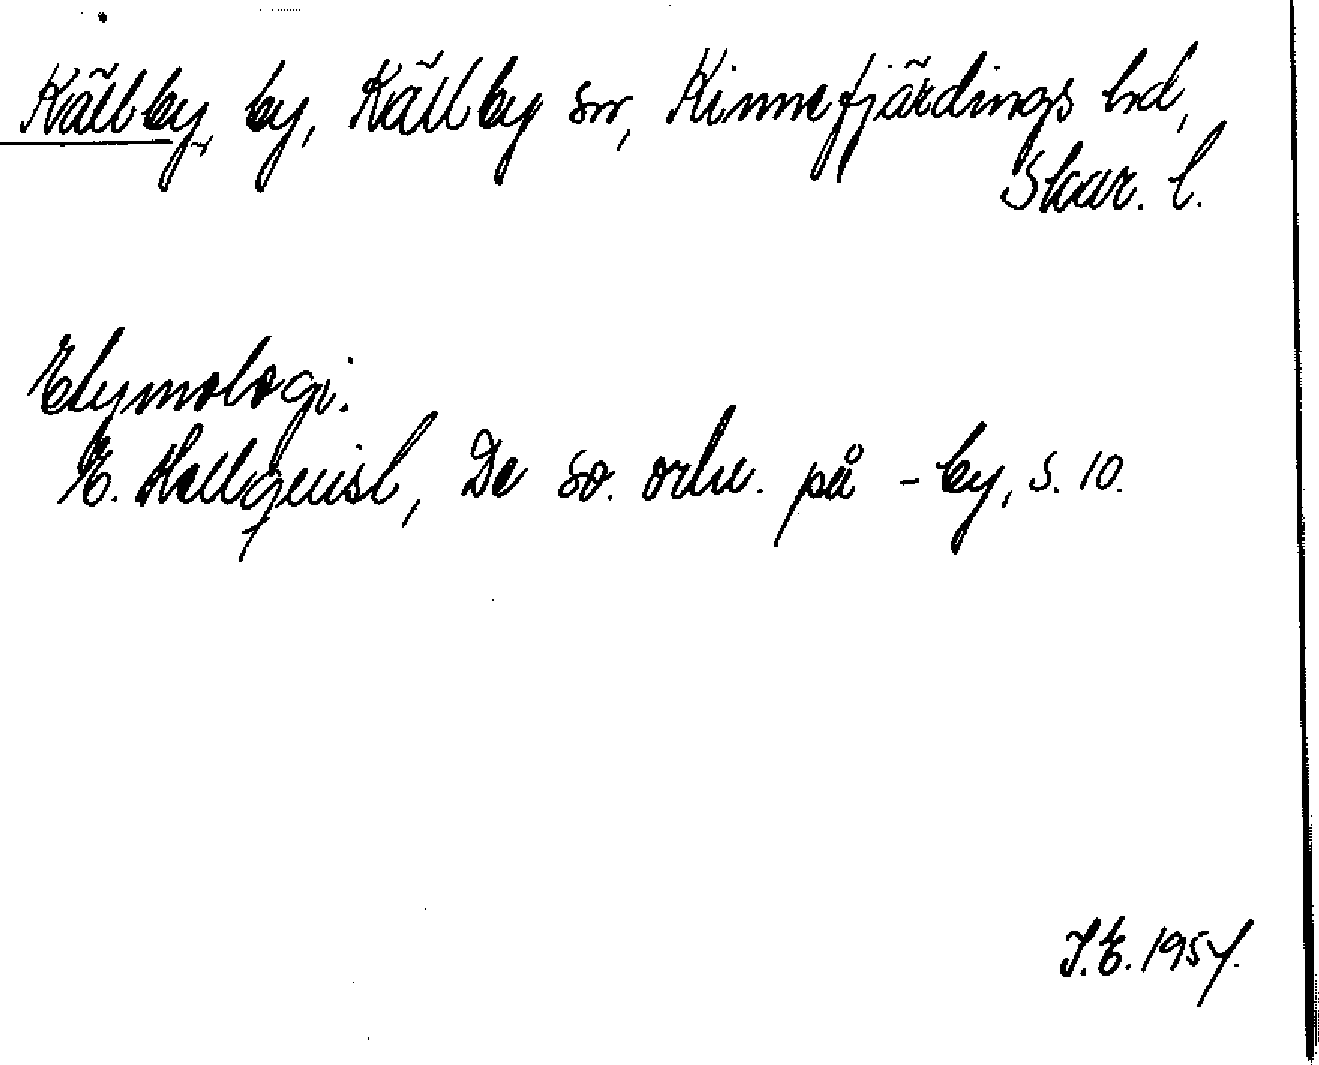 Källby, by, Källby sn, Kinnefjärdings hd,
Skar. l.
Etymologi.
E. Hellquist, De sv. ortn. på -by, s. 10.
I.E. 1957.